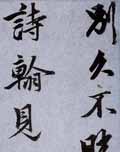 別久不
詩翰見